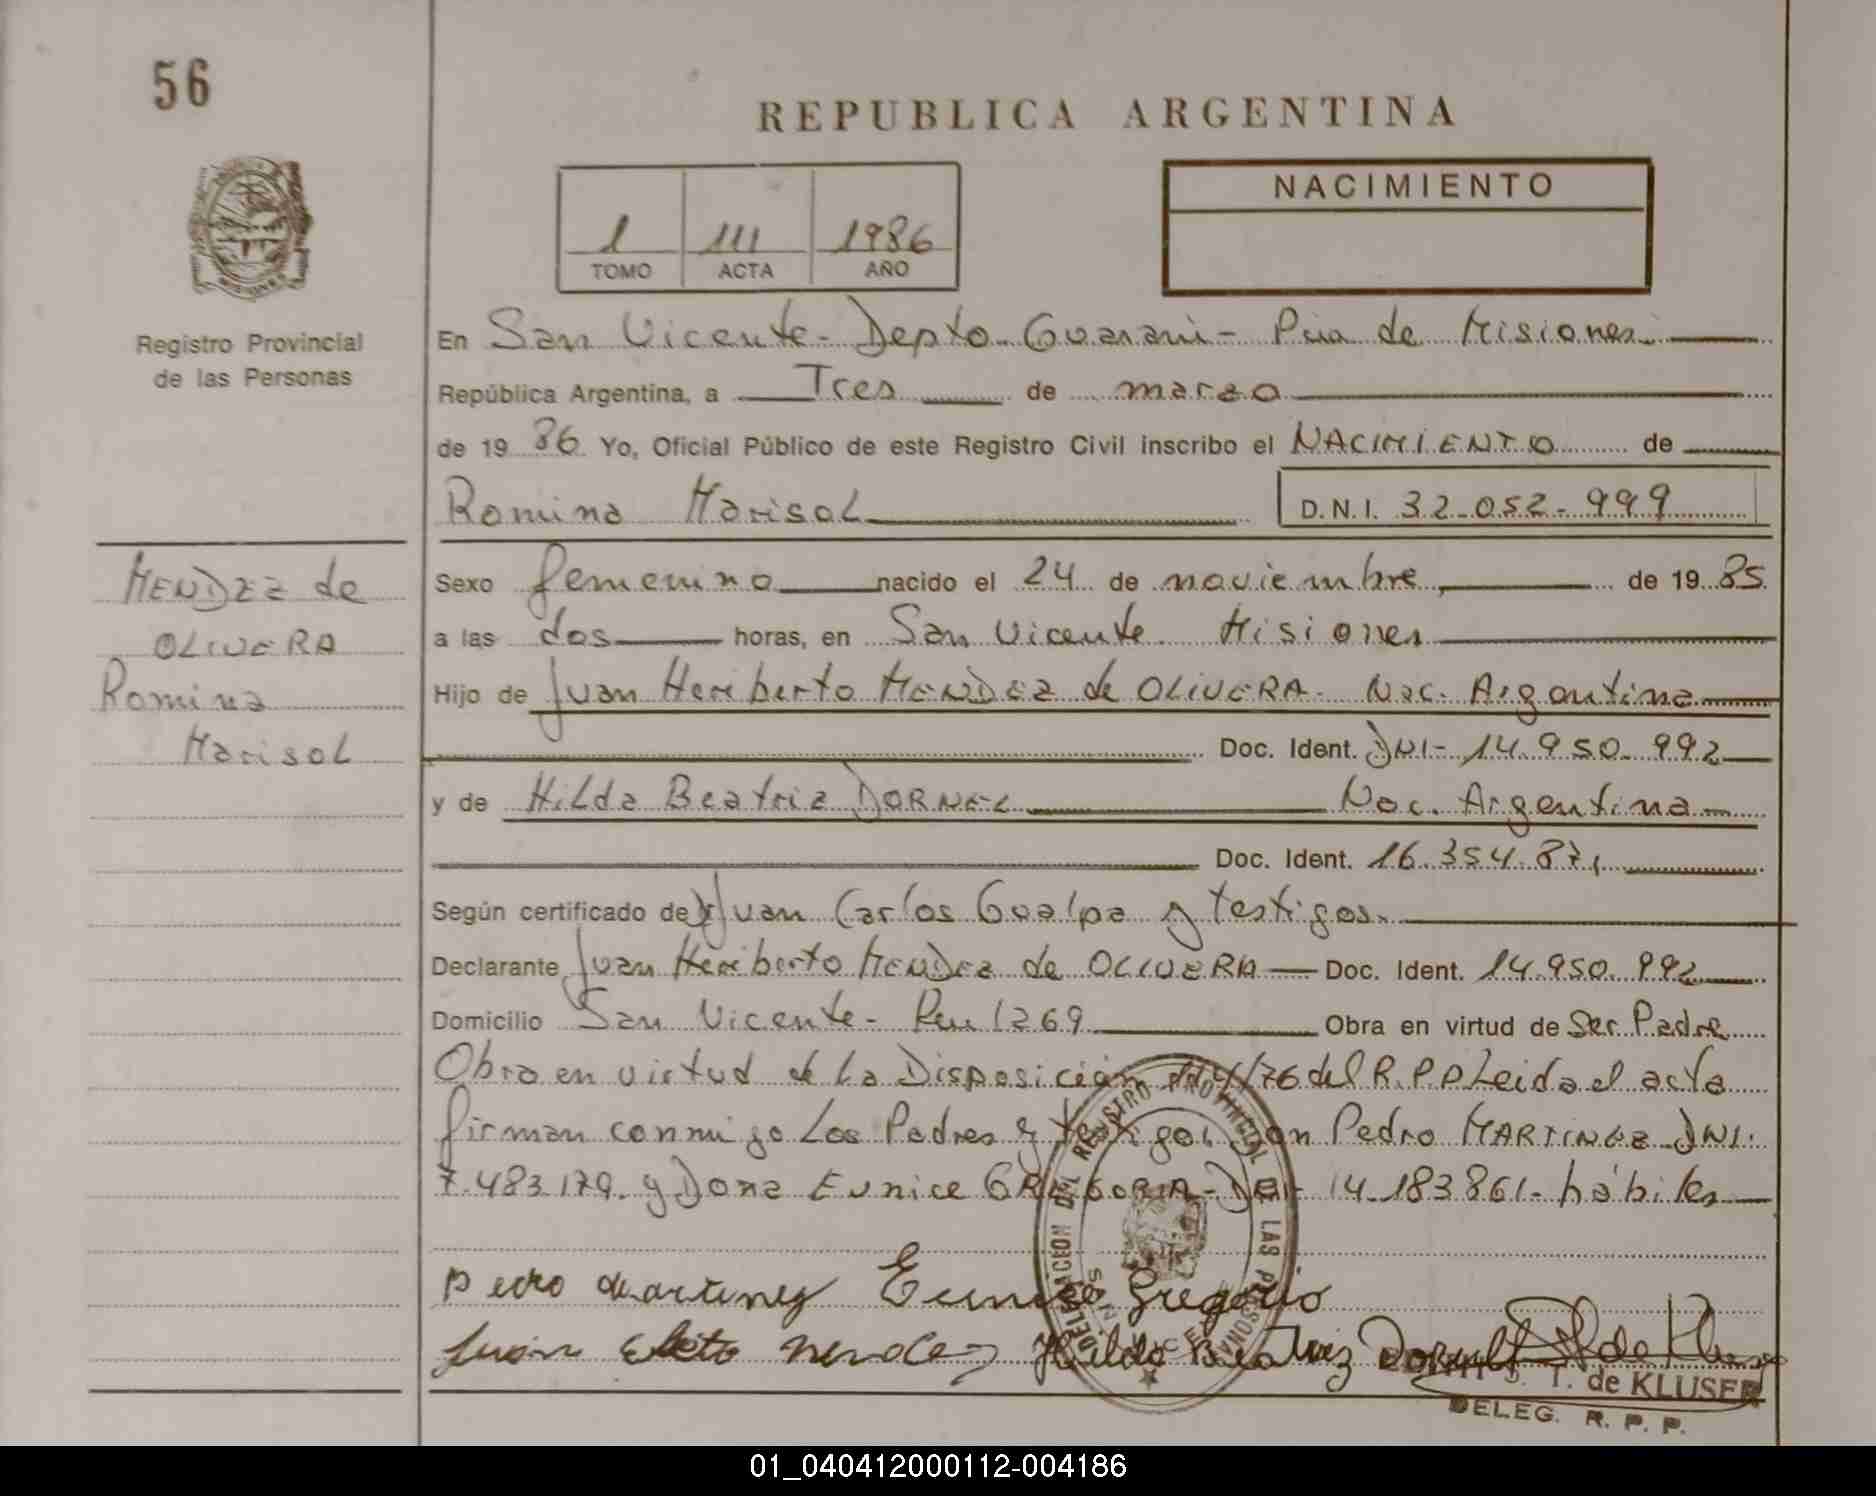 56
REPUBLICA ARGENTINA
NACIMIENTO
1 111 1986
TOMO ACTA AÑO
Registro Provincial
de las Personas
En San Vicente - Depto. Guarani - Pcia de Misiones
República Argentina, a Tres de marzo
de 19 86 Yo, Oficial Público de este Registro Civil inscribo el NACIMIENTO de
Romina Marisol D.N.I. 32.052.999
MENDEZ de
OLIVERA
Romina
Marisol
Sexo femenino nacido el 24 de noviembre, de 19 85
a las dos horas, en San Vicente. Misiones
Hijo de Juan Heriberto MENDEZ de OLIVERA. Nac. Argentina
Doc. Ident. DNI- 14.950.992
y de Hilda Beatriz DORNEL Nac. Argentina
Doc. Ident. 16.354.871
Según certificado de Juan Carlos Gualpa y testigos.
Declarante Juan Heriberto MENDEZ de OLIVERA Doc. Ident. 14.950.992
Domicilio San Vicente - 1269 Obra en virtud de Ser Padre
Obra en virtud de la Disposición 114/76 del R.P.P Leida el acta
firman conmigo Los Padres y testigos, Don Pedro MARTINEZ DNI.
7.483.179. y Dona Eunice GREGORIA - 14.183.861 - hábiles
Pedro Martinez Eunice Gregorio
Juan Mendez Hilda Beatriz Dornel
DELEGACION DEL REGISTRO PROVINCIAL DE LAS PERSONAS
SAN VICENTE
S. T. de KLUSER
DELEG. R. P. P.
01_040412000112-004186